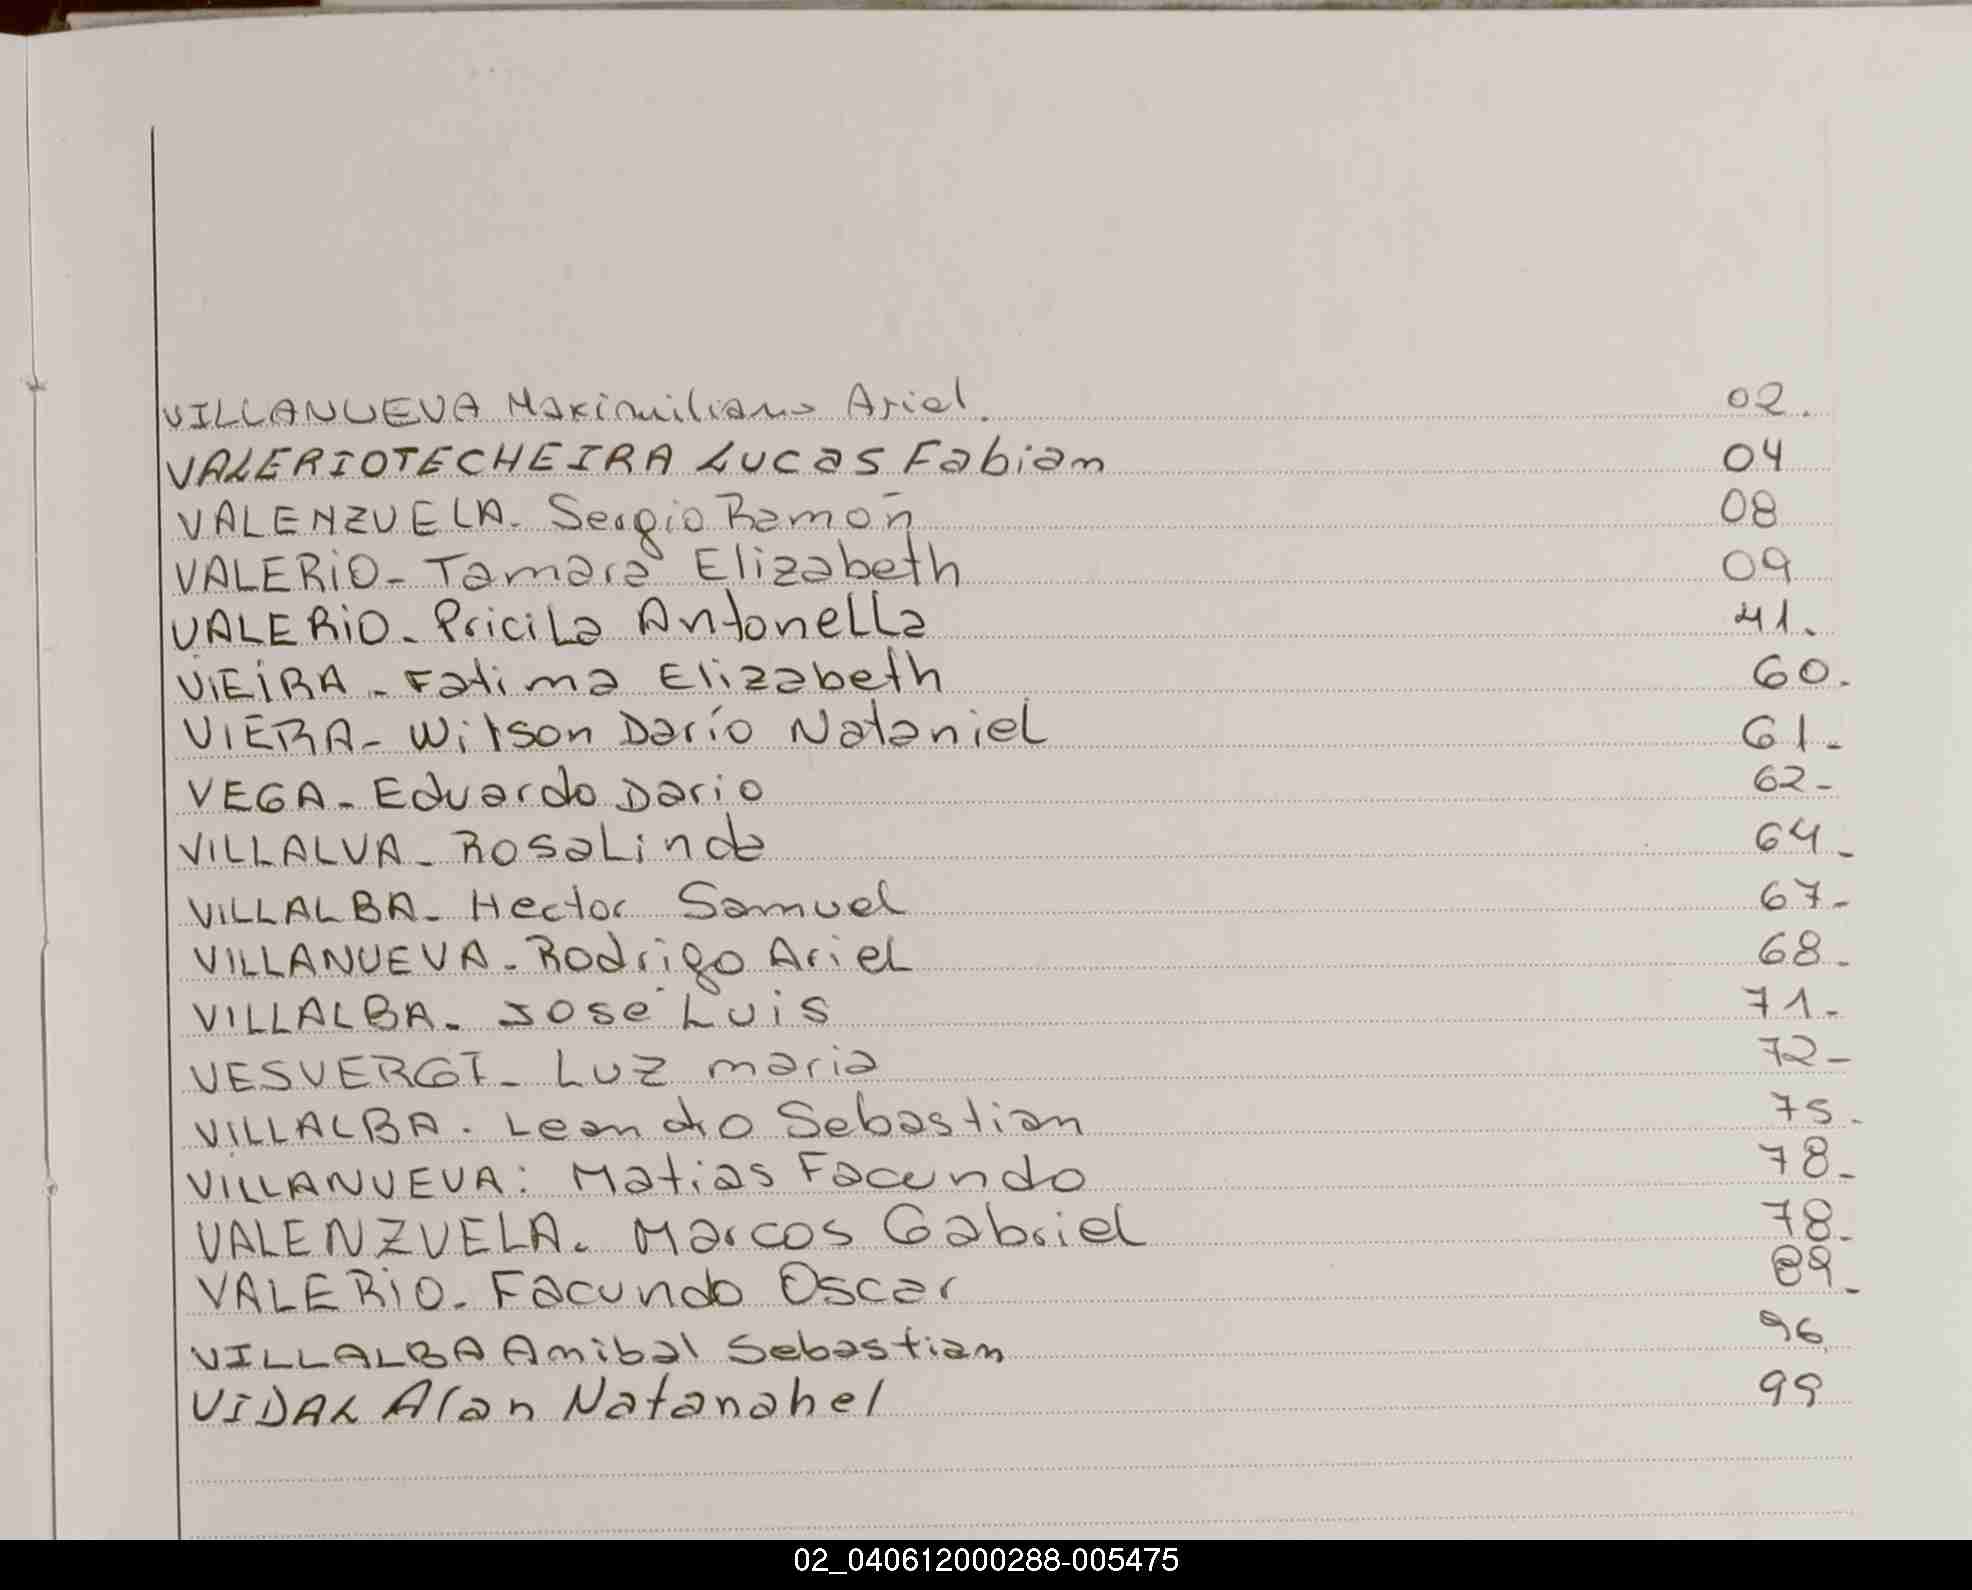 VILLANUEVA Maximiliano Ariel. 02.
VALERIOTECHEIRA Lucas Fabian 04
VALENZUELA- Sergio Ramón 08
VALERIO- Tamara Elizabeth 09
VALERIO- Pricila Antonella 41.
VIEIRA- Fatima Elizabeth 60.
VIERA- Wilson Darío Nataniel 61-
VEGA- Eduardo Dario 62-
VILLALVA- Rosalinda 64-
VILLALBA- Hector Samuel 67-
VILLANUEVA- Rodrigo Ariel 68-
VILLALBA- José Luis 71-
VESVERGT- Luz maria 72-
VILLALBA. Leandro Sebastian 75-
VILLANUEVA: Matias Facundo 78-
VALENZUELA. Marcos Gabriel 78-
VALERIO- Facundo Oscar 89-
VILLALBA Anibal Sebastian 96
VIDAL Alan Natanahel 99
02_040612000288-005475